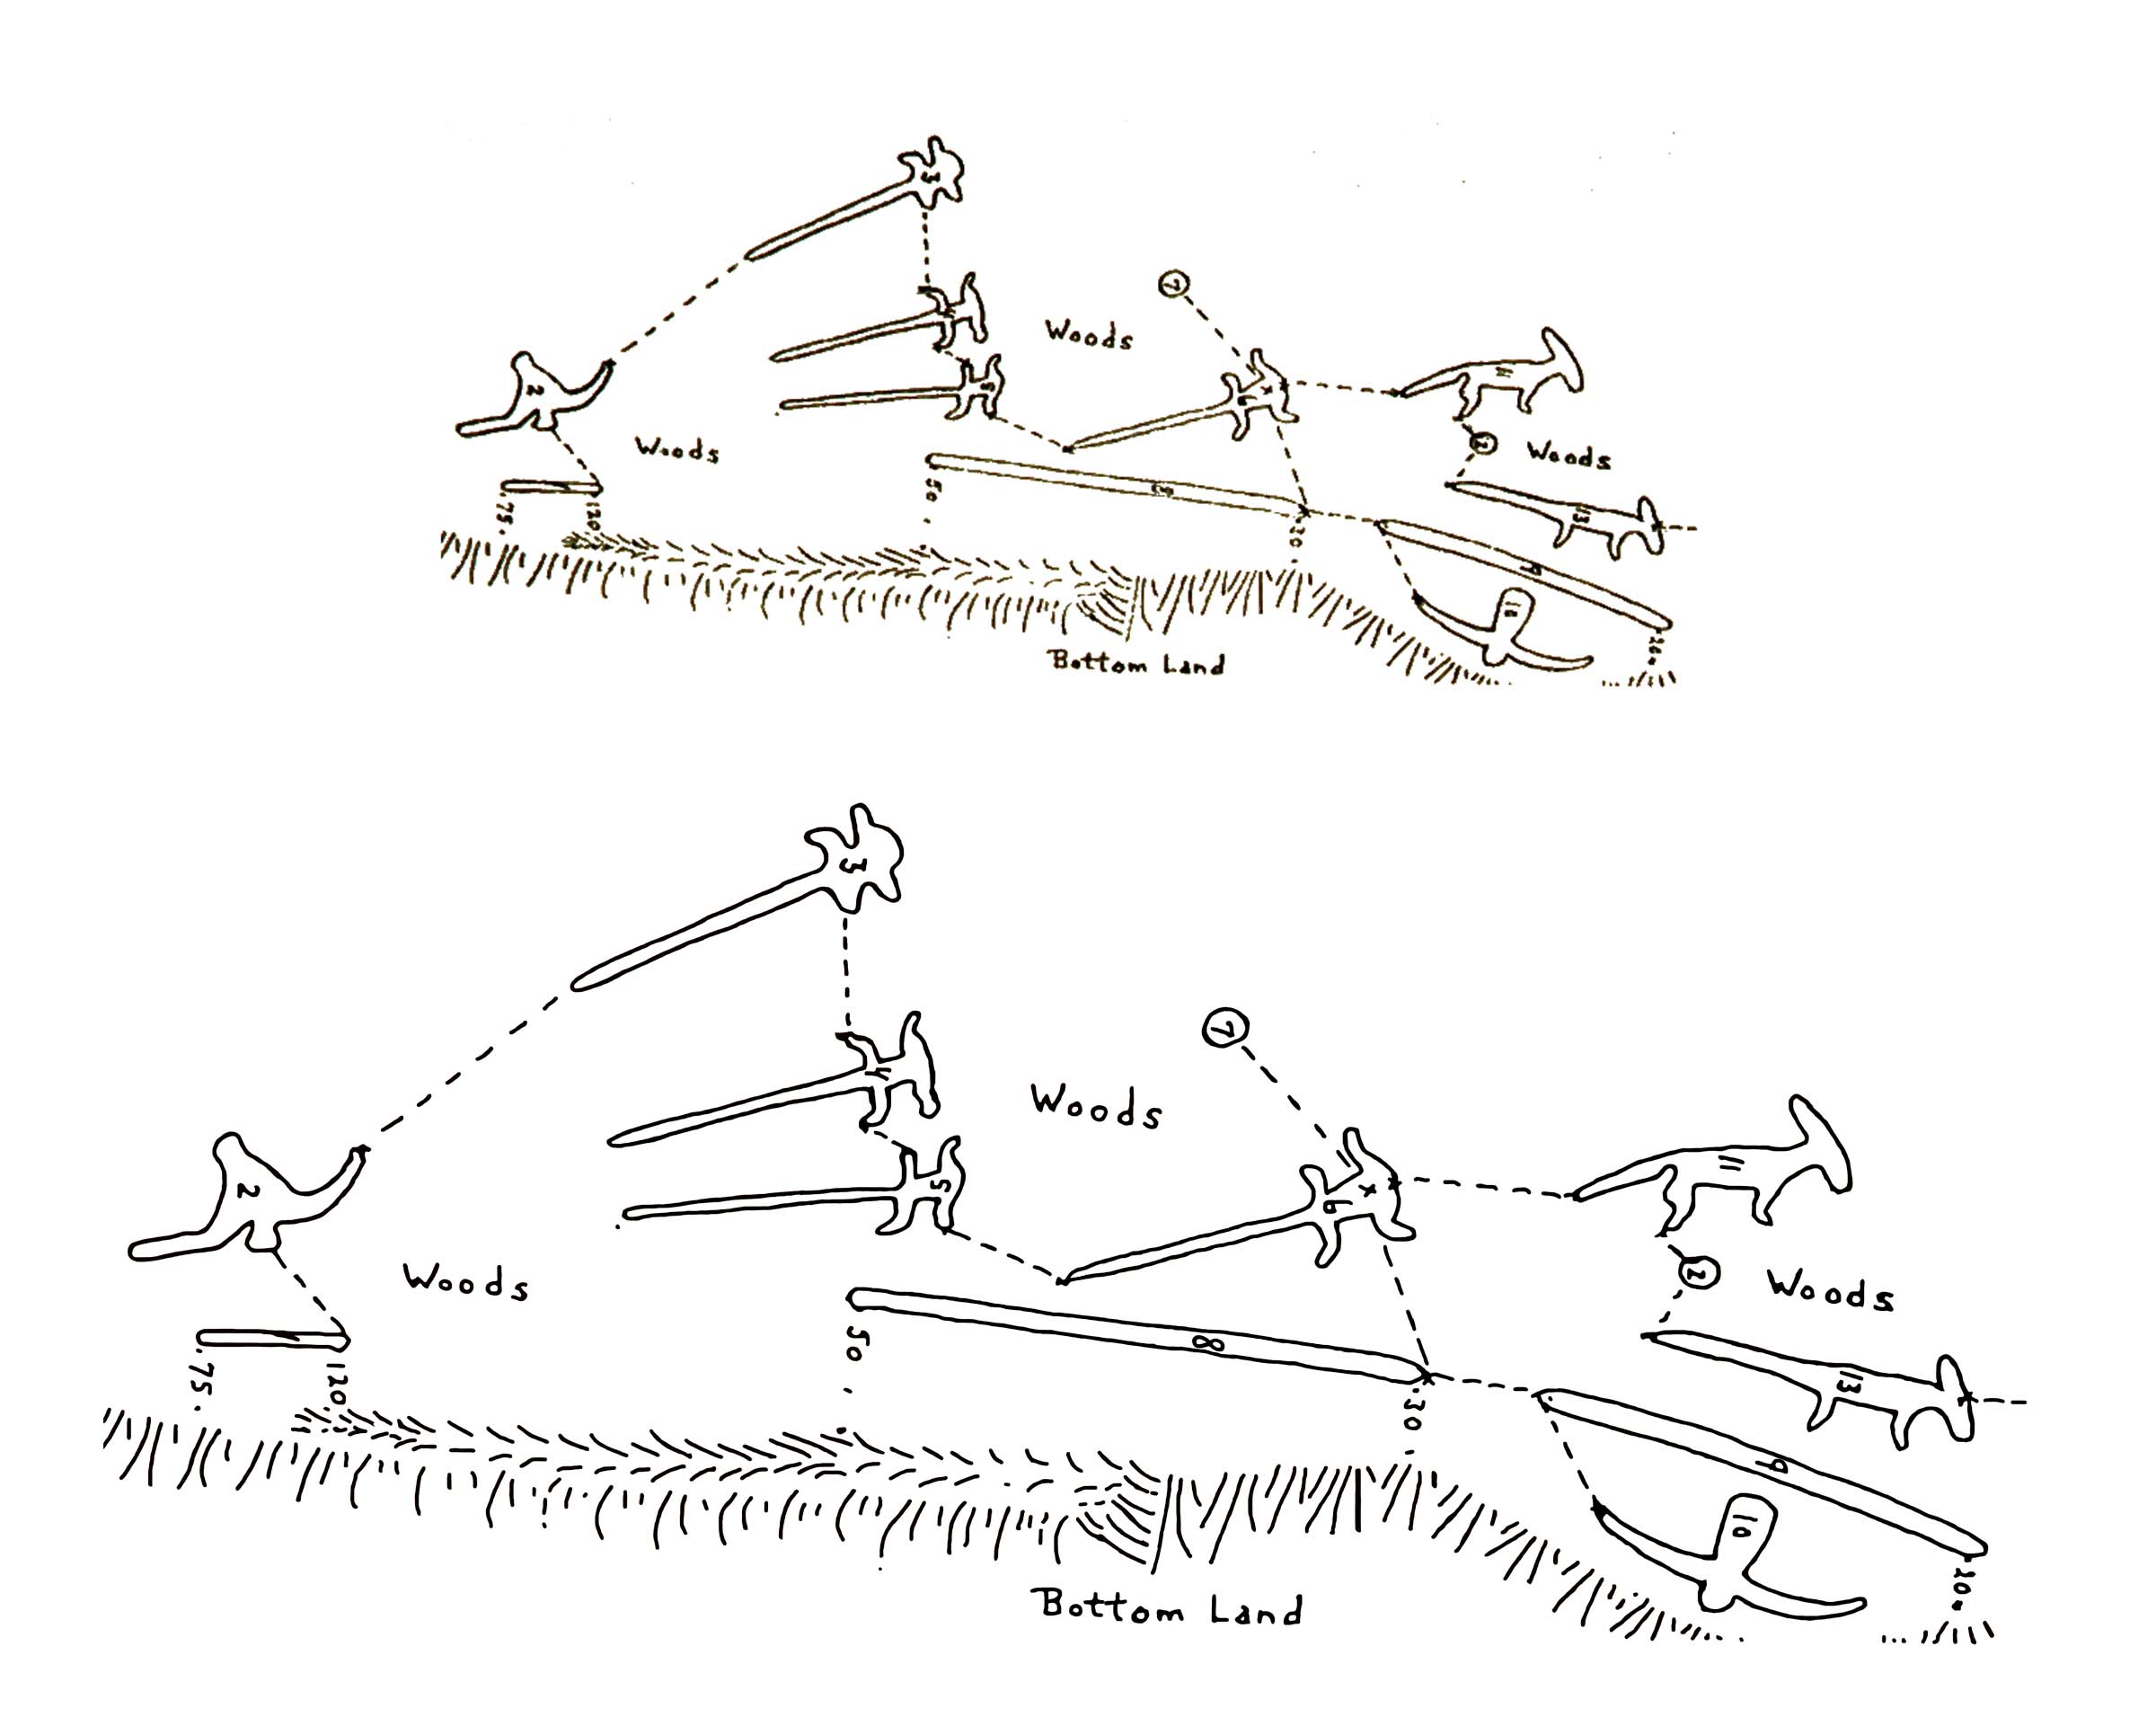 3
4
7
Woods
11
2
5
6
x
Woods
12
Woods
75
120
50
8
30
13
9
10
20
Bottom Land
3
7
4
Woods
11
2
5
6
x
Woods
12
Woods
75
120
50
8
30
13
9
10
20
Bottom Land